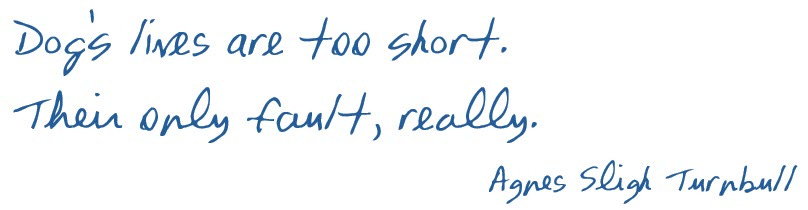 Dog's lives are too short.
Their only fault, really.
Agnes Sligh Turnbull